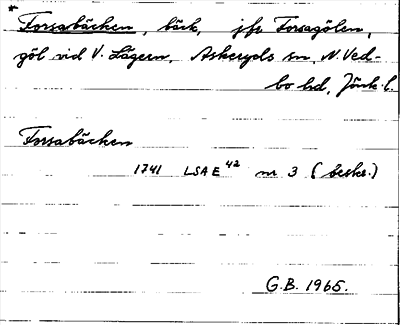 * Forsabäcken, bäck, jfr Forsagölen,
göl vid V. Lägern, Askeryds sn, N. Ved-
bo hd, Jönk. l.
Forsabäcken
1741 LSA E 42 nr 3 (beskr.)
G.B. 1965.